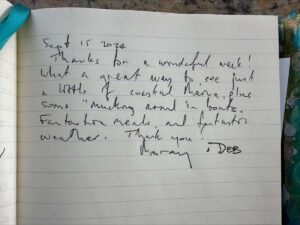 Sept 15 2020
Thanks for a wonderful week!
What a great way to see just
a little of coastal Maine, plus
some "mucking around in boats.
Fantastic meals, and fantastic
weather. Thank you!
Murray + Deb